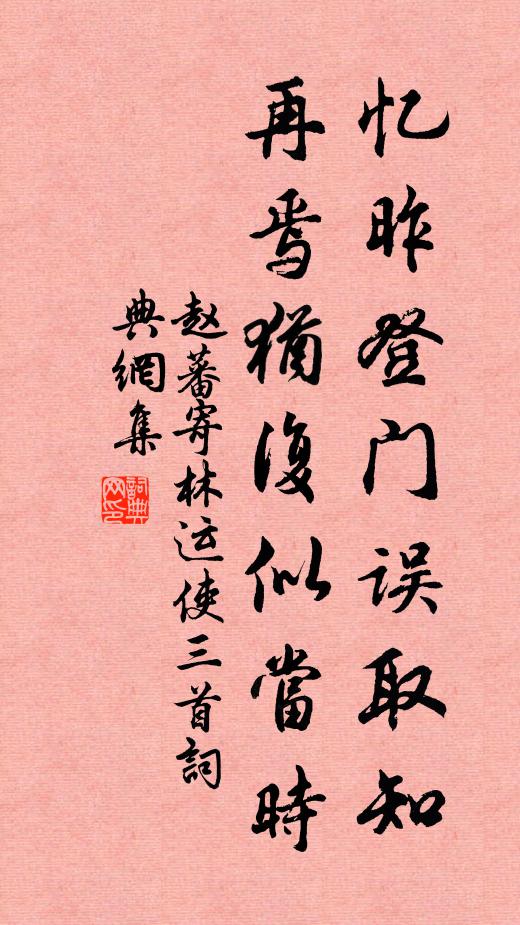 忆昨登门误取知
再焉猶復似當時
赵蕃寄林运使三首詞
典網集
詞典
网印